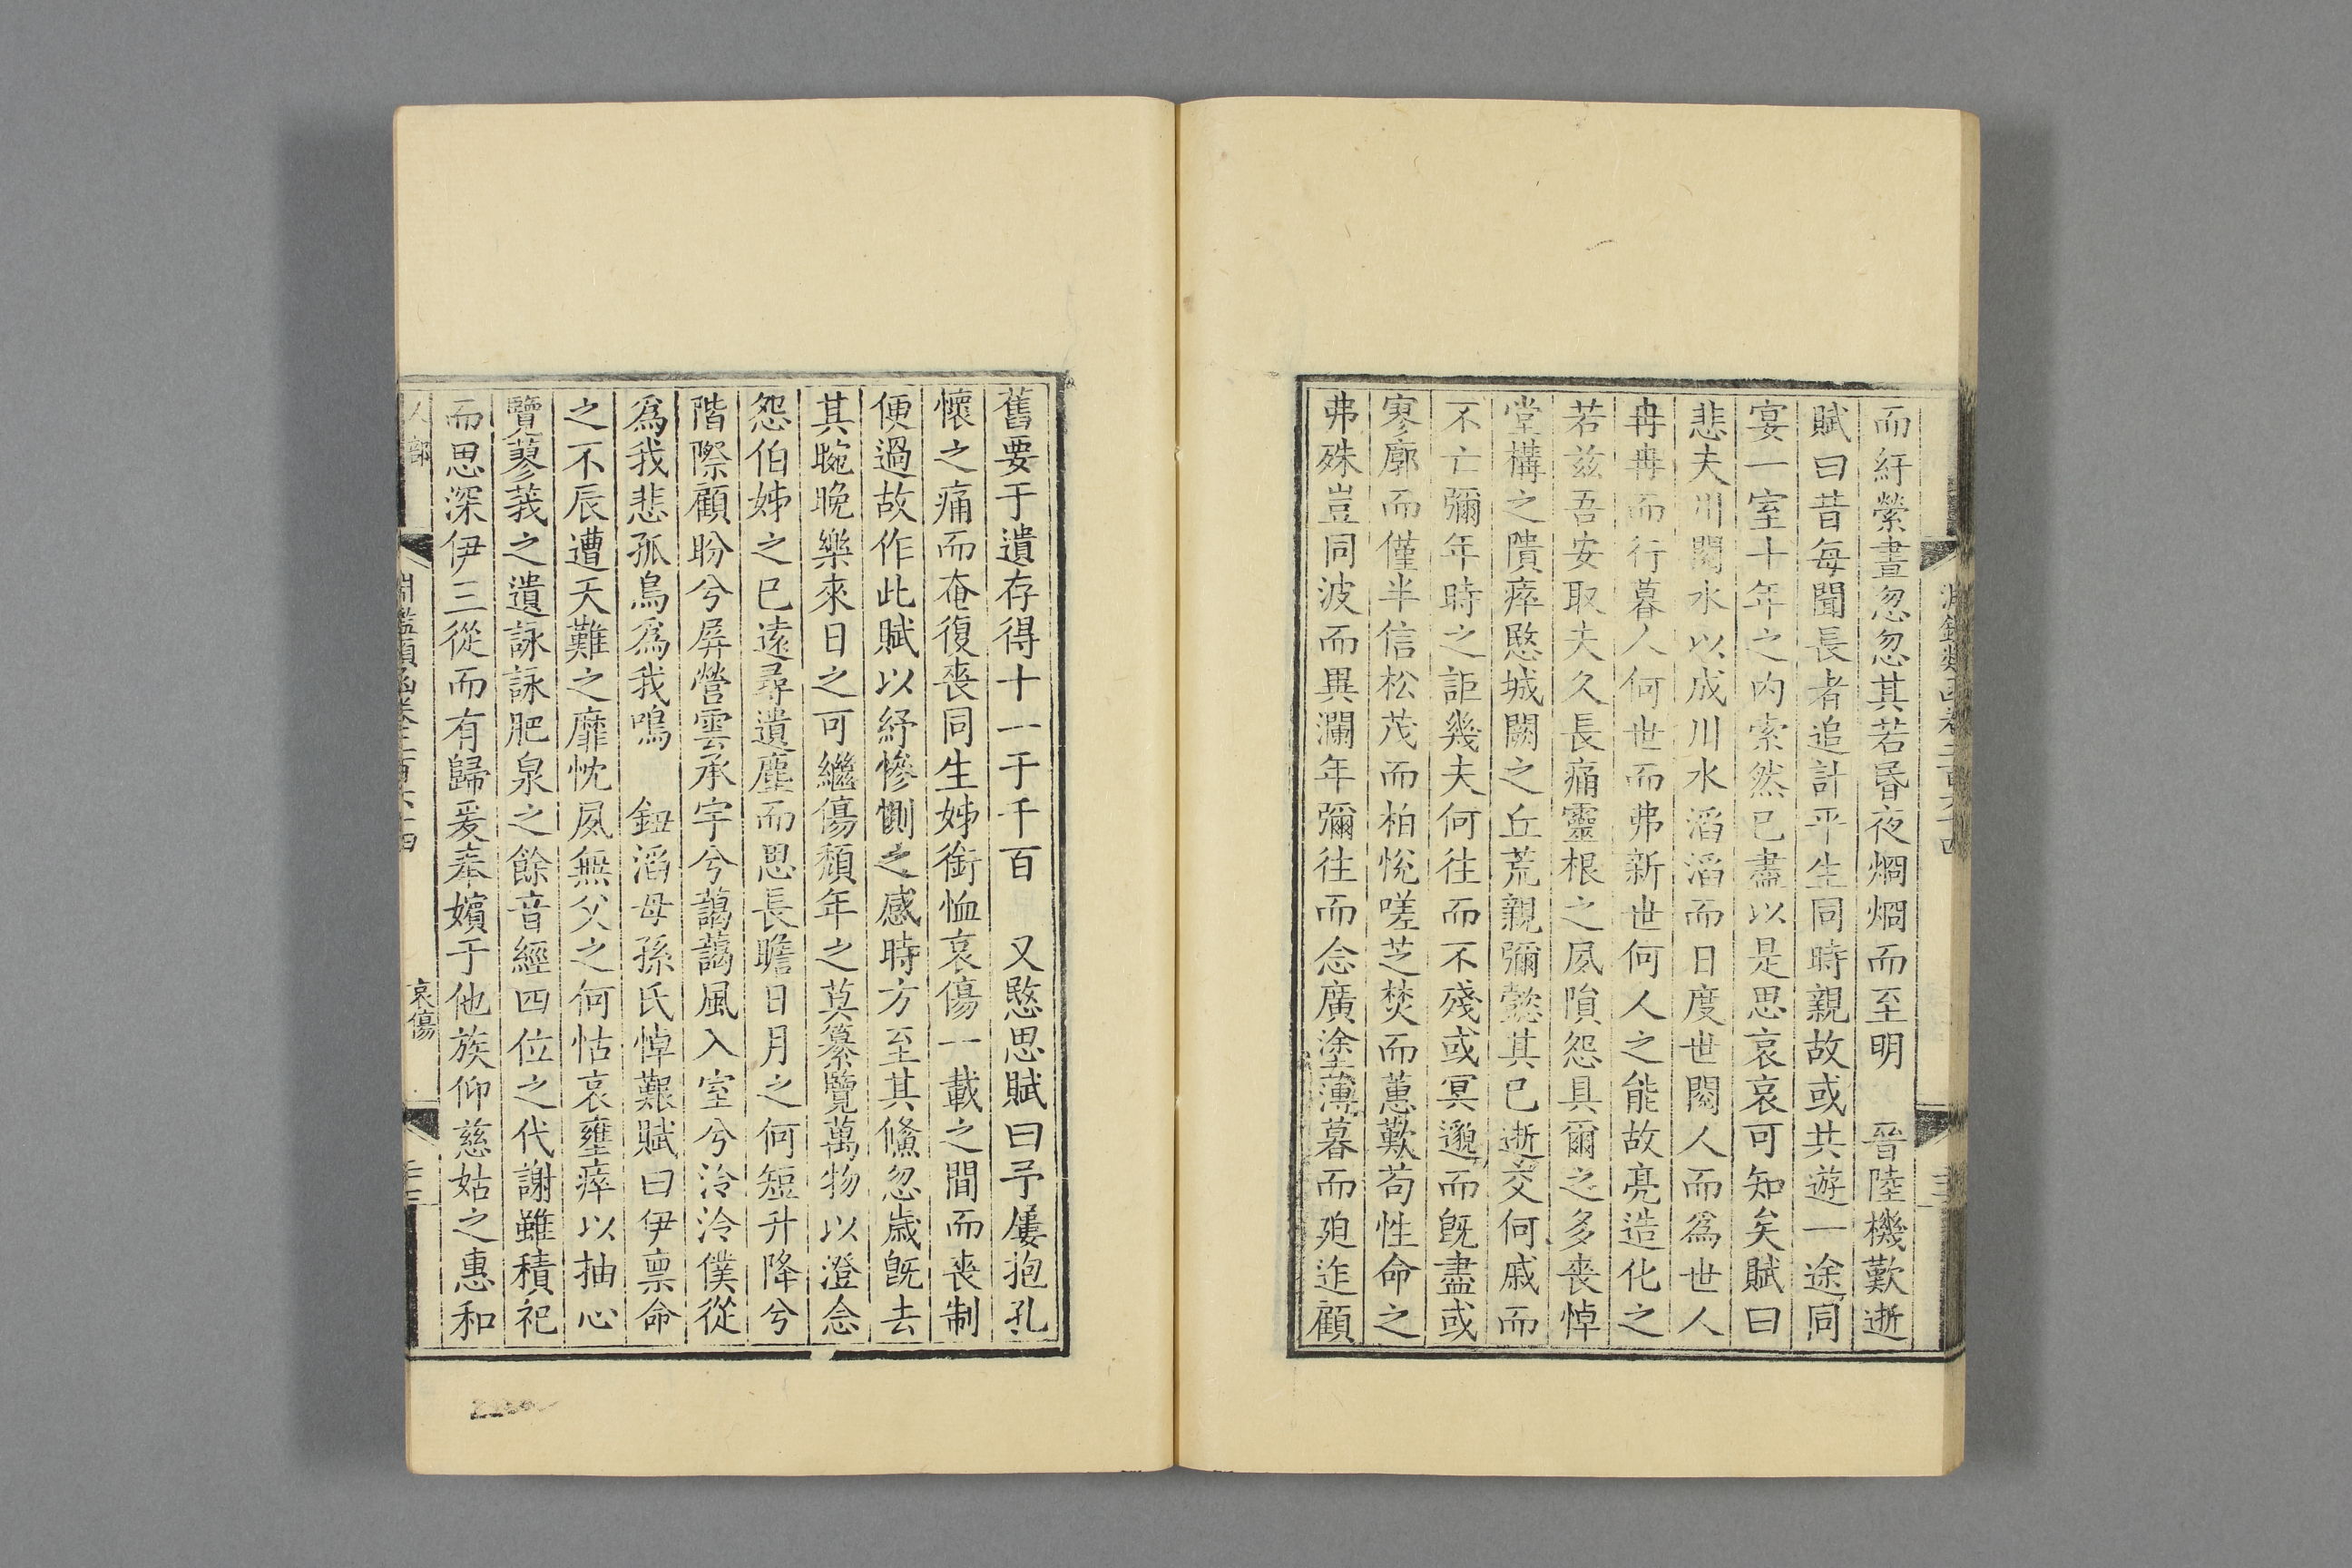 而紆縈晝忽忽其若昬夜烱烱而至明　晉陸機歎逝
賦曰昔每聞長者追計平生同時親故或共遊一途同
宴一室十年之內索然已盡以是思哀哀可知矣賦曰
悲夫川閱水以成川水滔滔而日度世閱人而爲世人
冉冉而行暮人何世而弗新世何人之能故亮造化之
若兹吾安取夫久長痛靈根之夙隕怨具爾之多喪悼
堂構之隤瘁愍城闕之丘荒親彌懿其已逝交何戚而
不亡彌年時之詎幾夫何往而不殘或冥邈而旣盡或
寥廓而僅半信松茂而柏悅嗟芝焚而蕙歎苟性命之
弗殊豈同波而異瀾年彌往而念廣塗薄暮而廹迮顧
舊要于遺存得十一于千百　又愍思賦曰予屢抱孔
懷之痛而奄復喪同生姊銜恤哀傷一載之間而喪制
便過故作此賦以紓慘惻之感時方至其儵忽歲旣去
其晼晚樂來日之可繼傷頹年之莫纂覽萬物以澄念
怨伯姊之已遠尋遺塵而思長瞻日月之何短升降兮
階際顧盼兮屏營雲承宇兮藹藹風入室兮泠泠僕從
爲我悲孤鳥爲我鳴　鈕滔母孫氏悼艱賦曰伊禀命
之不辰遭天難之靡忱夙無父之何怙哀壅瘁以抽心
覽蓼莪之遺詠詠肥泉之餘音經四位之代謝雖積祀
而思深伊三從而有歸爰奉嬪于他族仰慈姑之惠和
人部
淵鑑類函卷二百六十四
哀傷